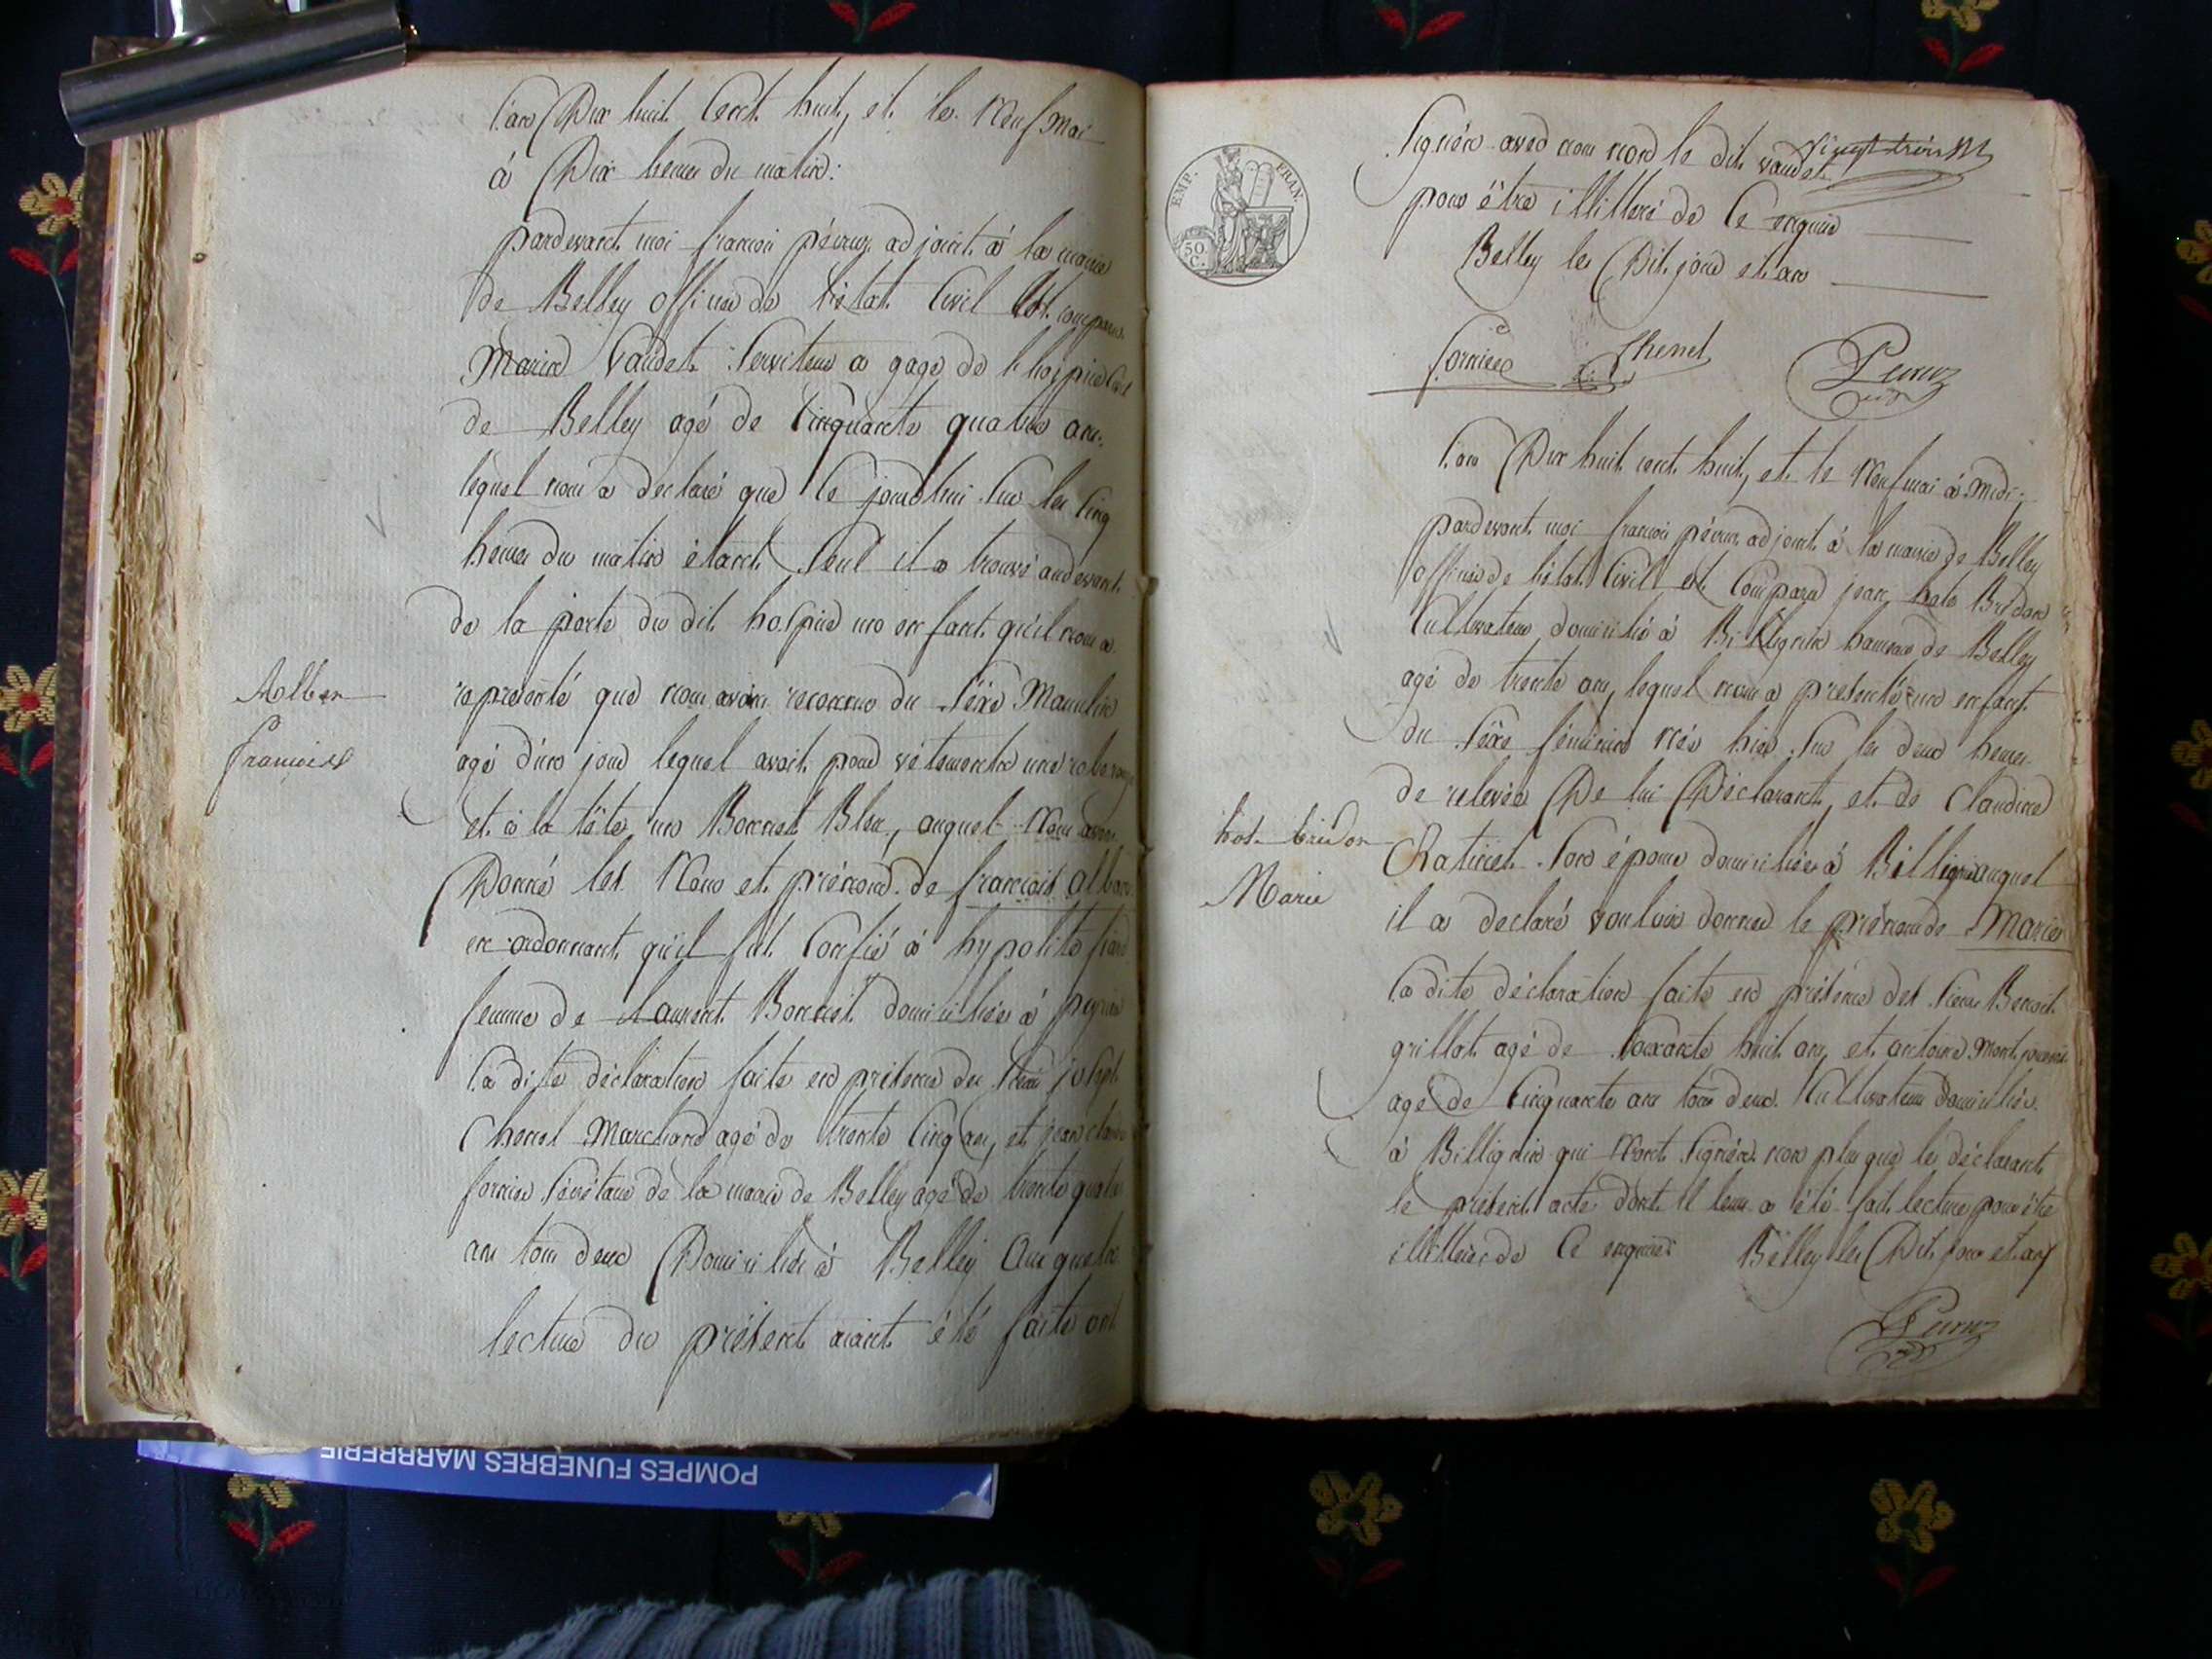 L'an Dix huit Cent huit, et le Neuf Mai
à Dix heures du matin:
pardevant moi francois péruz adjoint à la mairie
de Belley officier de l'état Civil Est comparu
Marin Vaudet Serviteur a gage de l'hospice Civil
de Belley agé de Cinquante quatre ans
lequel nous a declaré que Ce jourdhui Sur les Cinq
heures du matin étant Seul il a trouvé audevant
de la porte du dit hospice un enfant qu'il nous a
Alban
représenté que nous avons reconnu du Séxe Masculin
francois
agé d'un jour lequel avait pour vétements une robe
et à la tête un Bonnet Bleu, auquel Nous avons
Donné les Nom et prénom de francois alban
en ordonnant qu'il fut Confié à hypolite
femme de Laurent Bonnet domiciliée à
La dite déclaration faite en présence des Sieurs joseph
Chenel Marchand agé de trente Cinq ans, et jean claude
fornier Secrétaire de la mairie de Belley agé de trente quatre
ans tous deux Domiciliés à Belley Auxquels
lecture du présent aiant été faite ont
EMP. FRAN.
50 C.
vingt trois
Signés avec nous non le dit vaudet
pour être illitteré de Ce enquis
Belley les Dit jour et an
fornier Chenel Peruz
L'an Dix huit cent huit, et le Neuf mai à Midi;
pardevant moi francois péruz adjoint à la mairie de Belley
officier de l'état Civil est Comparu jean hote Bridon
Cultivateur domicilié à Billignin hameau de Belley
agé de trente ans, lequel nous a présenté un enfant
du Séxe féminin née hier Sur les deux heures
de relevée De lui Déclarant, et de Claudine
hot- bridon
Ratinet Son épouse domiciliée à Billignin auquel
Marie
il a declaré vouloir donner le prénom de Marie
La dite déclaration faite en présence des Sieurs Benoit
grillat agé de Soixante huit ans, et antoine
agé de Cinquante ans tous deux Cultivateurs domiciliés
à Billignin qui N'ont Signés non plus que le déclarant
le présent acte dont il leur a été fait lecture pour être
illitterés de Ce enquis Belley les Dit jour et an
Peruz
POMPES FUNEBRES MARBRERIE